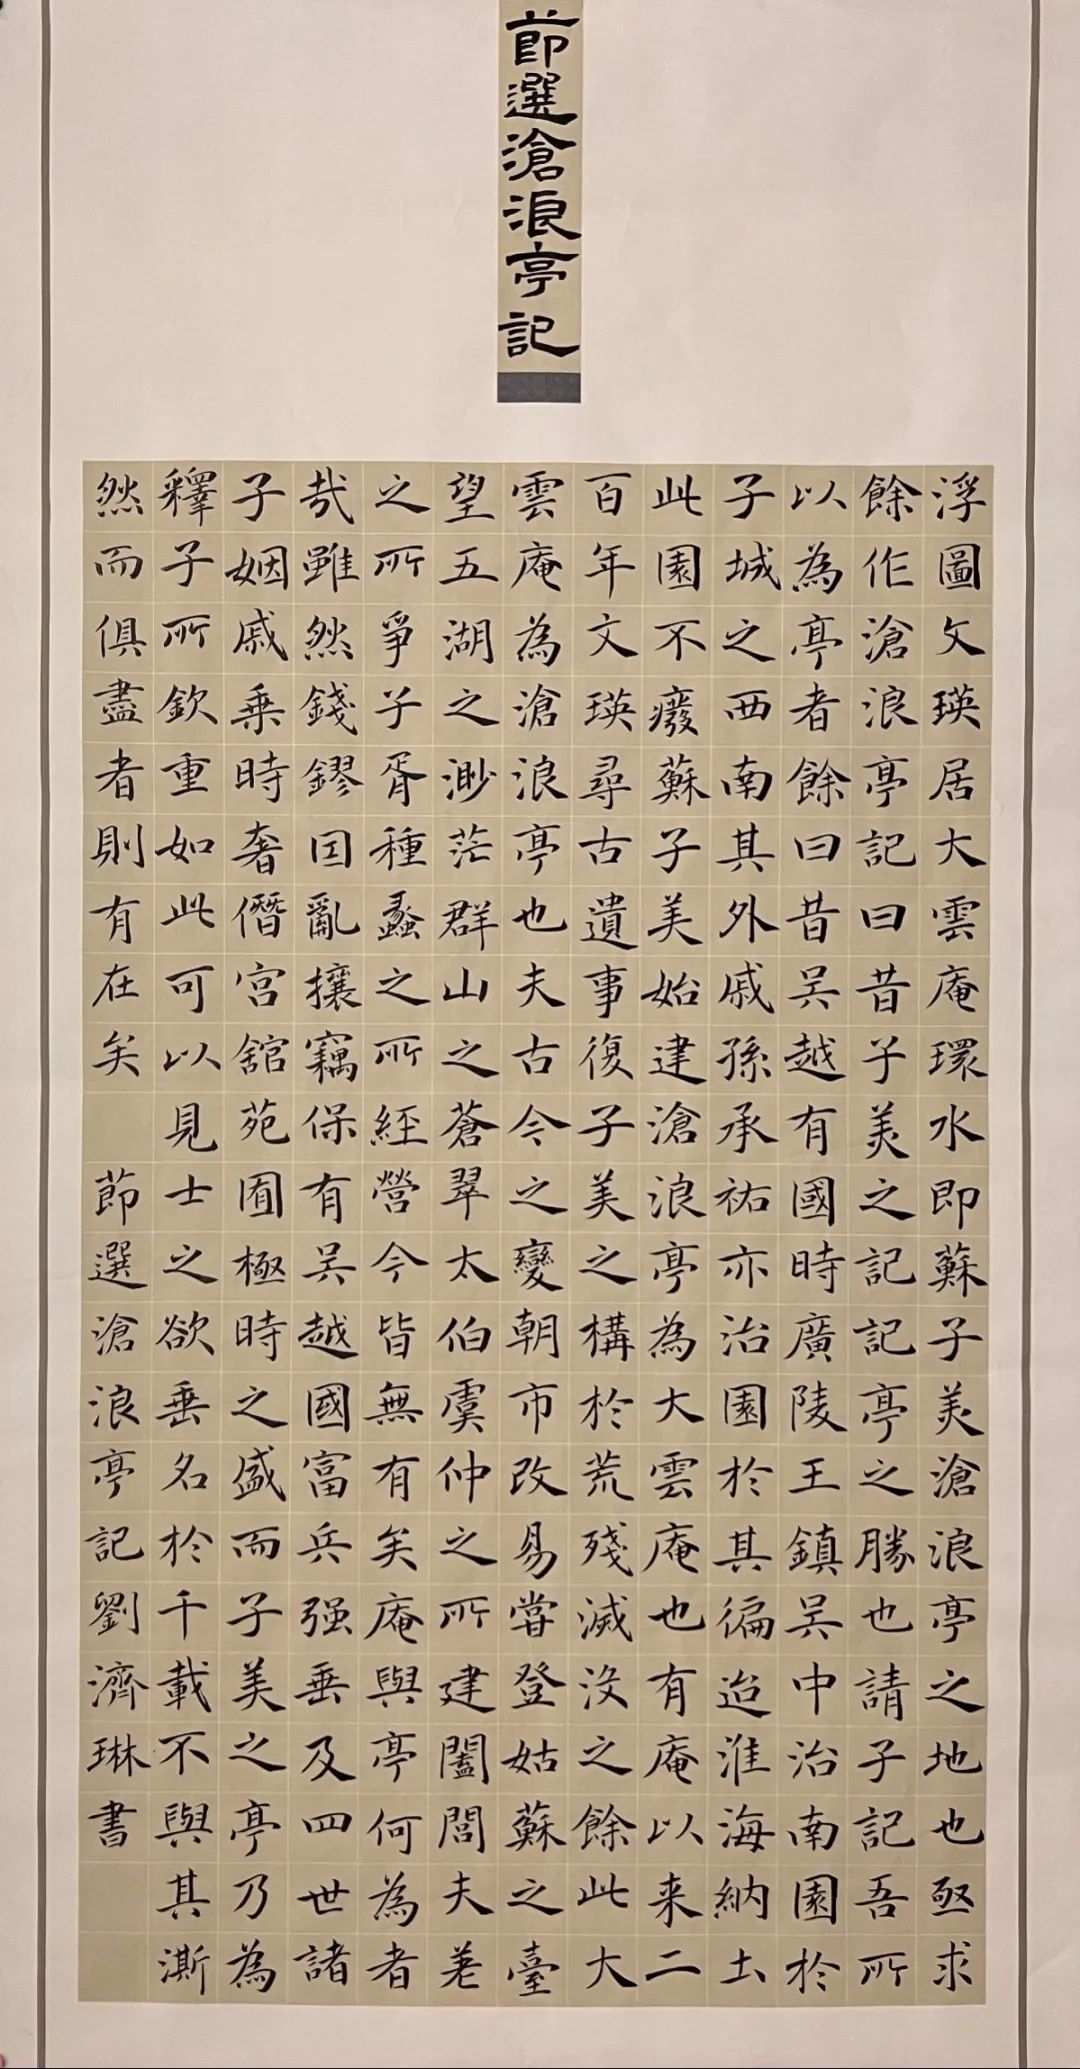 節選滄浪亭記
浮圖文瑛居大雲庵環水即蘇子美滄浪亭之地也亟求
餘作滄浪亭記曰昔子美之記記亭之勝也請子記吾所
以為亭者餘曰昔吳越有國時廣陵王鎮吳中治南園於
子城之西南其外戚孫承祐亦治園於其偏迨淮海納土
此園不廢蘇子美始建滄浪亭為大雲庵也有庵以来二
百年文瑛尋古遺事復子美之構於荒殘滅沒之餘此大
雲庵為滄浪亭也夫古今之變朝市改易嘗登姑蘇之臺
望五湖之渺茫群山之蒼翠太伯虞仲之所建闔閭夫差
之所爭子胥種蠡之所經營今皆無有矣庵與亭何為者
哉雖然錢鏐因亂攘竊保有吳越國富兵强垂及四世諸
子姻戚乘時奢僭宮舘苑囿極時之盛而子美之亭乃為
釋子所欽重如此可以見士之欲垂名於千載不與其澌
然而俱盡者則有在矣 節選滄浪亭記劉濟琳書